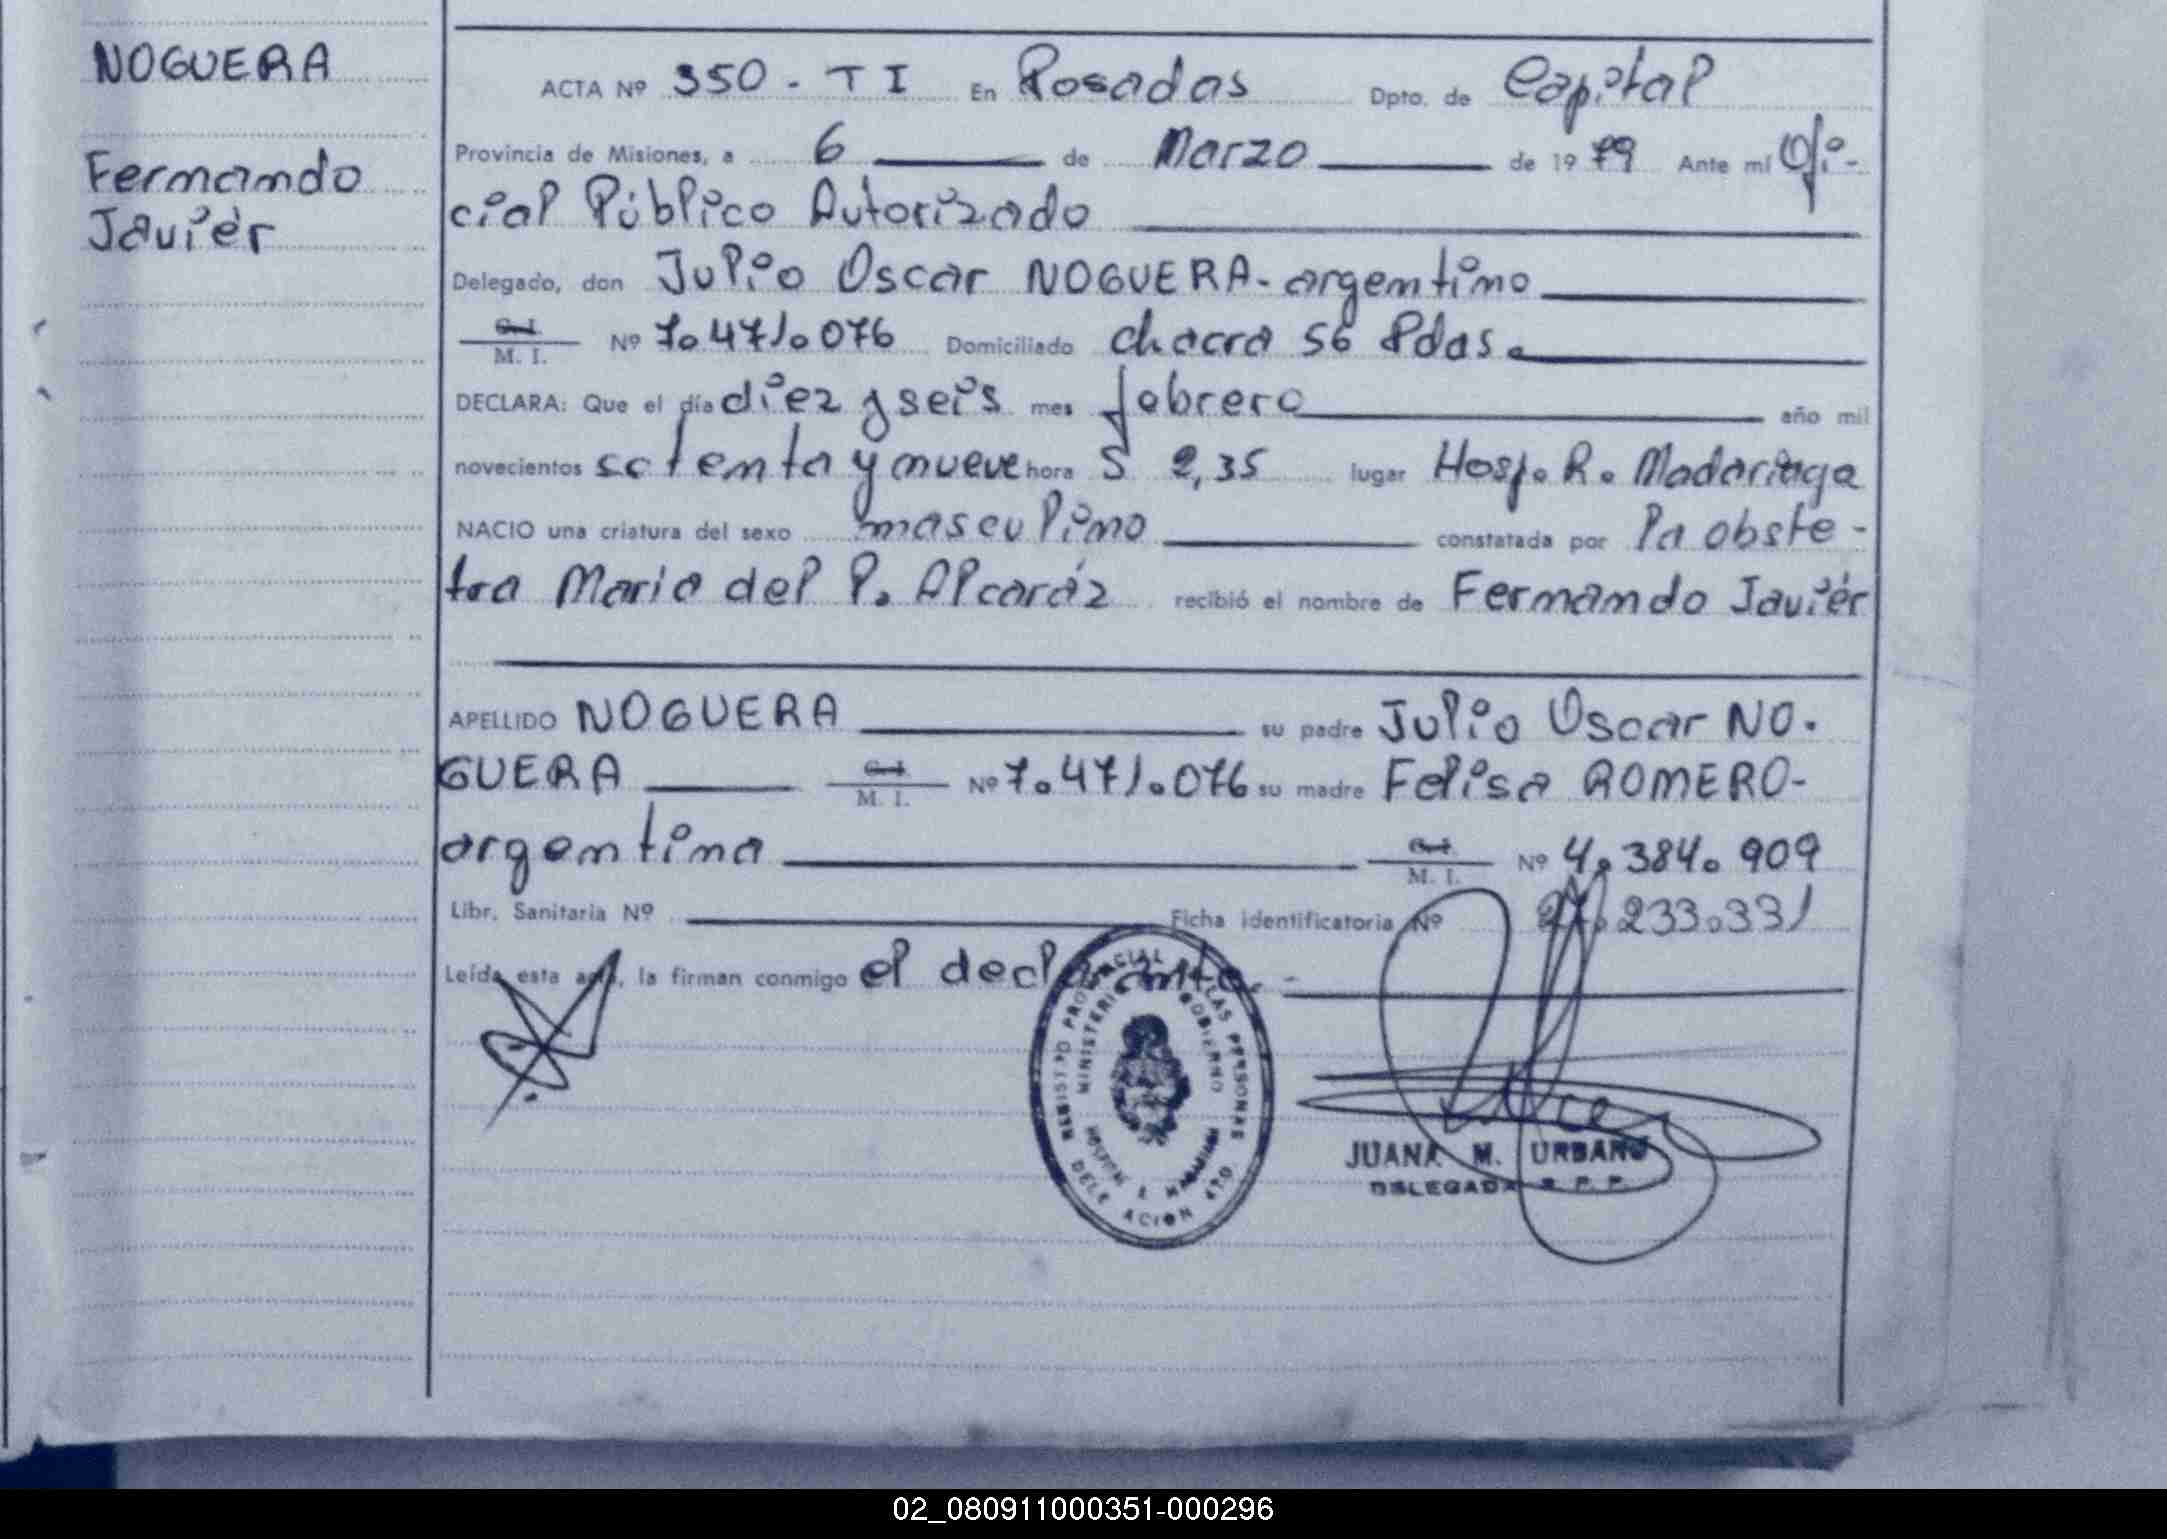 NOGUERA
Fernando
Javiér
ACTA Nº 350 - T I En Posadas Dpto. de Capital
Provincia de Misiones, a 6 de Marzo de 1979 Ante mí Ofi-
cial Público Autorizado
Delegado, don Julio Oscar NOGUERA - argentino
C. I. M. I. Nº 7.471.076 Domiciliado chacra 56 Pdas.
DECLARA: Que el día diez y seis mes febrero año mil
novecientos setenta y nueve hora s 2,35 lugar Hosp. R. Madariaga
NACIO una criatura del sexo masculino constatada por la obste-
tra Maria del P. Alcaráz recibió el nombre de Fernando Javiér
APELLIDO NOGUERA su padre Julio Oscar NO-
GUERA C. I. M. I. Nº 7.471.076 su madre Felisa ROMERO-
argentina C. I. M. I. Nº 4.384.909
Libr. Sanitaria Nº Ficha identificatoria Nº 27.233.331
Leída esta acta, la firman conmigo el declarante.
REGISTRO PROVINCIAL DE LAS PERSONAS
MINISTERIO DE GOBIERNO
HOSPITAL R. MADARIAGA
DELEGACION
JUANA M. URBANO
DELEGADA R. P. P.
02_080911000351-000296